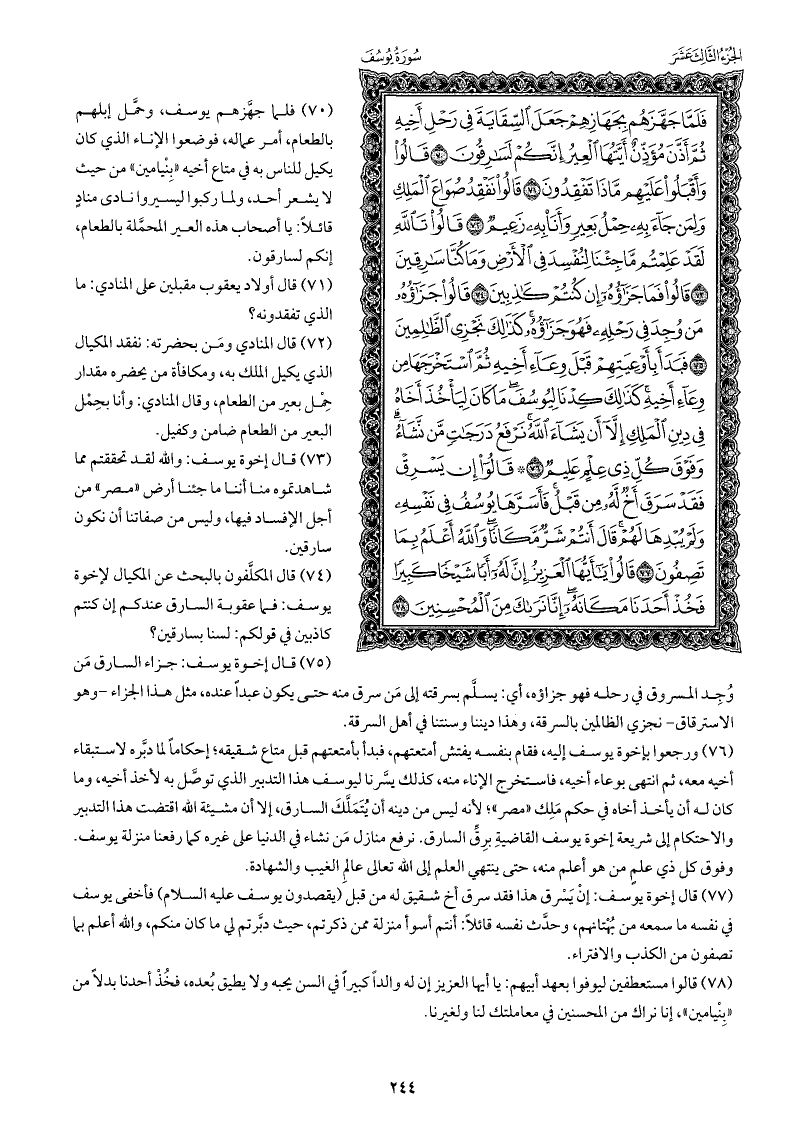 الجزء الثالث عشر
سورة يوسف
فَلَمَّا جَهَّزَهُم بِجَهَازِهِمْ جَعَلَ ٱلسِّقَايَةَ فِى رَحْلِ أَخِيهِ
ثُمَّ أَذَّنَ مُؤَذِّنٌ أَيَّتُهَا ٱلْعِيرُ إِنَّكُمْ لَسَـٰرِقُونَ ۝٧٠ قَالُوا۟
وَأَقْبَلُوا۟ عَلَيْهِم مَّاذَا تَفْقِدُونَ ۝٧١ قَالُوا۟ نَفْقِدُ صُوَاعَ ٱلْمَلِكِ
وَلِمَن جَآءَ بِهِۦ حِمْلُ بَعِيرٍ وَأَنَا۠ بِهِۦ زَعِيمٌ ۝٧٢ قَالُوا۟ تَٱللَّهِ
لَقَدْ عَلِمْتُم مَّا جِئْنَا لِنُفْسِدَ فِى ٱلْأَرْضِ وَمَا كُنَّا سَـٰرِقِينَ
۝٧٣ قَالُوا۟ فَمَا جَزَٰٓؤُهُۥٓ إِن كُنتُمْ كَـٰذِبِينَ ۝٧٤ قَالُوا۟ جَزَٰٓؤُهُۥ
مَن وُجِدَ فِى رَحْلِهِۦ فَهُوَ جَزَٰٓؤُهُۥ ۚ كَذَٰلِكَ نَجْزِى ٱلظَّـٰلِمِينَ
۝٧٥ فَبَدَأَ بِأَوْعِيَتِهِمْ قَبْلَ وِعَآءِ أَخِيهِ ثُمَّ ٱسْتَخْرَجَهَا مِن
وِعَآءِ أَخِيهِ ۚ كَذَٰلِكَ كِدْنَا لِيُوسُفَ ۖ مَا كَانَ لِيَأْخُذَ أَخَاهُ
فِى دِينِ ٱلْمَلِكِ إِلَّآ أَن يَشَآءَ ٱللَّهُ ۚ نَرْفَعُ دَرَجَـٰتٍ مَّن نَّشَآءُ ۗ
وَفَوْقَ كُلِّ ذِى عِلْمٍ عَلِيمٌ ۝٧٦ * قَالُوٓا۟ إِن يَسْرِقْ
فَقَدْ سَرَقَ أَخٌ لَّهُۥ مِن قَبْلُ ۚ فَأَسَرَّهَا يُوسُفُ فِى نَفْسِهِۦ
وَلَمْ يُبْدِهَا لَهُمْ ۚ قَالَ أَنتُمْ شَرٌّ مَّكَانًا ۖ وَٱللَّهُ أَعْلَمُ بِمَا
تَصِفُونَ ۝٧٧ قَالُوا۟ يَـٰٓأَيُّهَا ٱلْعَزِيزُ إِنَّ لَهُۥٓ أَبًا شَيْخًا كَبِيرًا
فَخُذْ أَحَدَنَا مَكَانَهُۥٓ ۖ إِنَّا نَرَىٰكَ مِنَ ٱلْمُحْسِنِينَ ۝٧٨
(٧٠) فلما جهَّزهم يوسف، وحمَّل إبلهم
بالطعام، أمر عماله، فوضعوا الإناء الذي كان
يكيل للناس به في متاع أخيه «بِنْيامين» من حيث
لا يشعر أحد، ولما ركبوا ليسيروا نادى منادٍ
قائلاً: يا أصحاب هذه العير المحمَّلة بالطعام،
إنكم لسارقون.
(٧١) قال أولاد يعقوب مقبلين على المنادي: ما
الذي تفقدونه؟
(٧٢) قال المنادي ومَن بحضرته: نفقد المكيال
الذي يكيل الملك به، ومكافأة من يحضره مقدار
حِمْل بعير من الطعام، وقال المنادي: وأنا بحِمْل
البعير من الطعام ضامن وكفيل.
(٧٣) قال إخوة يوسف: والله لقد تحققتم مما
شاهدتموه منا أننا ما جئنا أرض «مصر» من
أجل الإفساد فيها، وليس من صفاتنا أن نكون
سارقين.
(٧٤) قال المكلَّفون بالبحث عن المكيال لإخوة
يوسف: فما عقوبة السارق عندكم إن كنتم
كاذبين في قولكم: لسنا بسارقين؟
(٧٥) قال إخوة يوسف: جزاء السارق مَن
وُجِد المسروق في رحله فهو جزاؤه، أي: يسلَّم بسرقته إلى مَن سرق منه حتى يكون عبداً عنده، مثل هذا الجزاء -وهو
الاسترقاق- نجزي الظالمين بالسرقة، وهذا ديننا وسنتنا في أهل السرقة.
(٧٦) ورجعوا بإخوة يوسف إليه، فقام بنفسه يفتش أمتعتهم، فبدأ بأمتعتهم قبل متاع شقيقه؛ إحكاماً لما دبَّره لاستبقاء
أخيه معه، ثم انتهى بوعاء أخيه، فاستخرج الإناء منه، كذلك يسَّرنا ليوسف هذا التدبير الذي توصَّل به لأخذ أخيه، وما
كان له أن يأخذ أخاه في حكم مَلِك «مصر»؛ لأنه ليس من دينه أن يُتَمَلَّكَ السارق، إلا أن مشيئة الله اقتضت هذا التدبير
والاحتكام إلى شريعة إخوة يوسف القاضيةِ برِقِّ السارق. نرفع منازل مَن نشاء في الدنيا على غيره كما رفعنا منزلة يوسف.
وفوق كل ذي علمٍ من هو أعلم منه، حتى ينتهي العلم إلى الله تعالى عالمِ الغيب والشهادة.
(٧٧) قال إخوة يوسف: إنْ يَسْرق هذا فقد سرق أخ شقيق له من قبل (يقصدون يوسف عليه السلام) فأخفى يوسف
في نفسه ما سمعه من بُهْتانهم، وحدَّث نفسه قائلاً: أنتم أسوأ منزلة ممن ذكرتم، حيث دبَّرتم لي ما كان منكم، والله أعلم بما
تصفون من الكذب والافتراء.
(٧٨) قالوا مستعطفين ليوفوا بعهد أبيهم: يا أيها العزيز إن له والداً كبيراً في السن يحبه ولا يطيق بُعده، فخُذْ أحدنا بدلاً من
«بِنْيامين»، إنا نراك من المحسنين في معاملتك لنا ولغيرنا.
٢٤٤